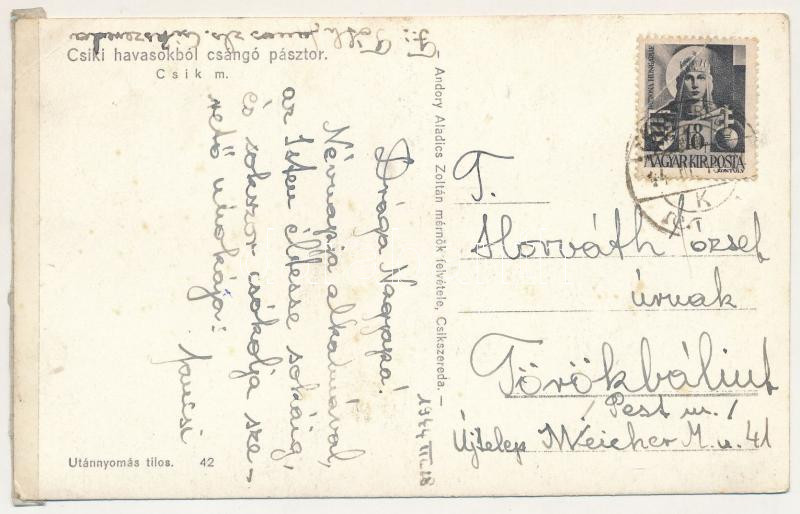 F: Tóth János Csikszereda
Csiki havasokból csángó pásztor.
Csik m.
Drága Nagyapa!
Névnapja alkalmával,
az Isten éltesse sokáig,
és sokszor csókolja sze-
rető unokája:
Jancsi
1944 III. 18
Andory Aladics Zoltán mérnök felvétele, Csikszereda. —
Utánnyomás tilos. 42
PATRONA HUNGARIAE
18
MAGYAR KIR. POSTA
T.
Horváth József
úrnak
Törökbálint
/Pest m./
Újtelep Weicher M. u. 41